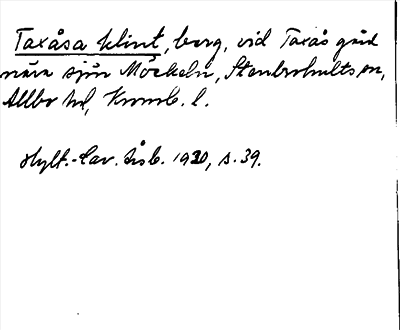 Taxåsa klint, berg, vid Taxås gård
nära sjön Möckeln, Stenbrohults sn,
Allbo hd, Kronob. l.
Hylt.-Cav. årsb. 1920, s. 39.